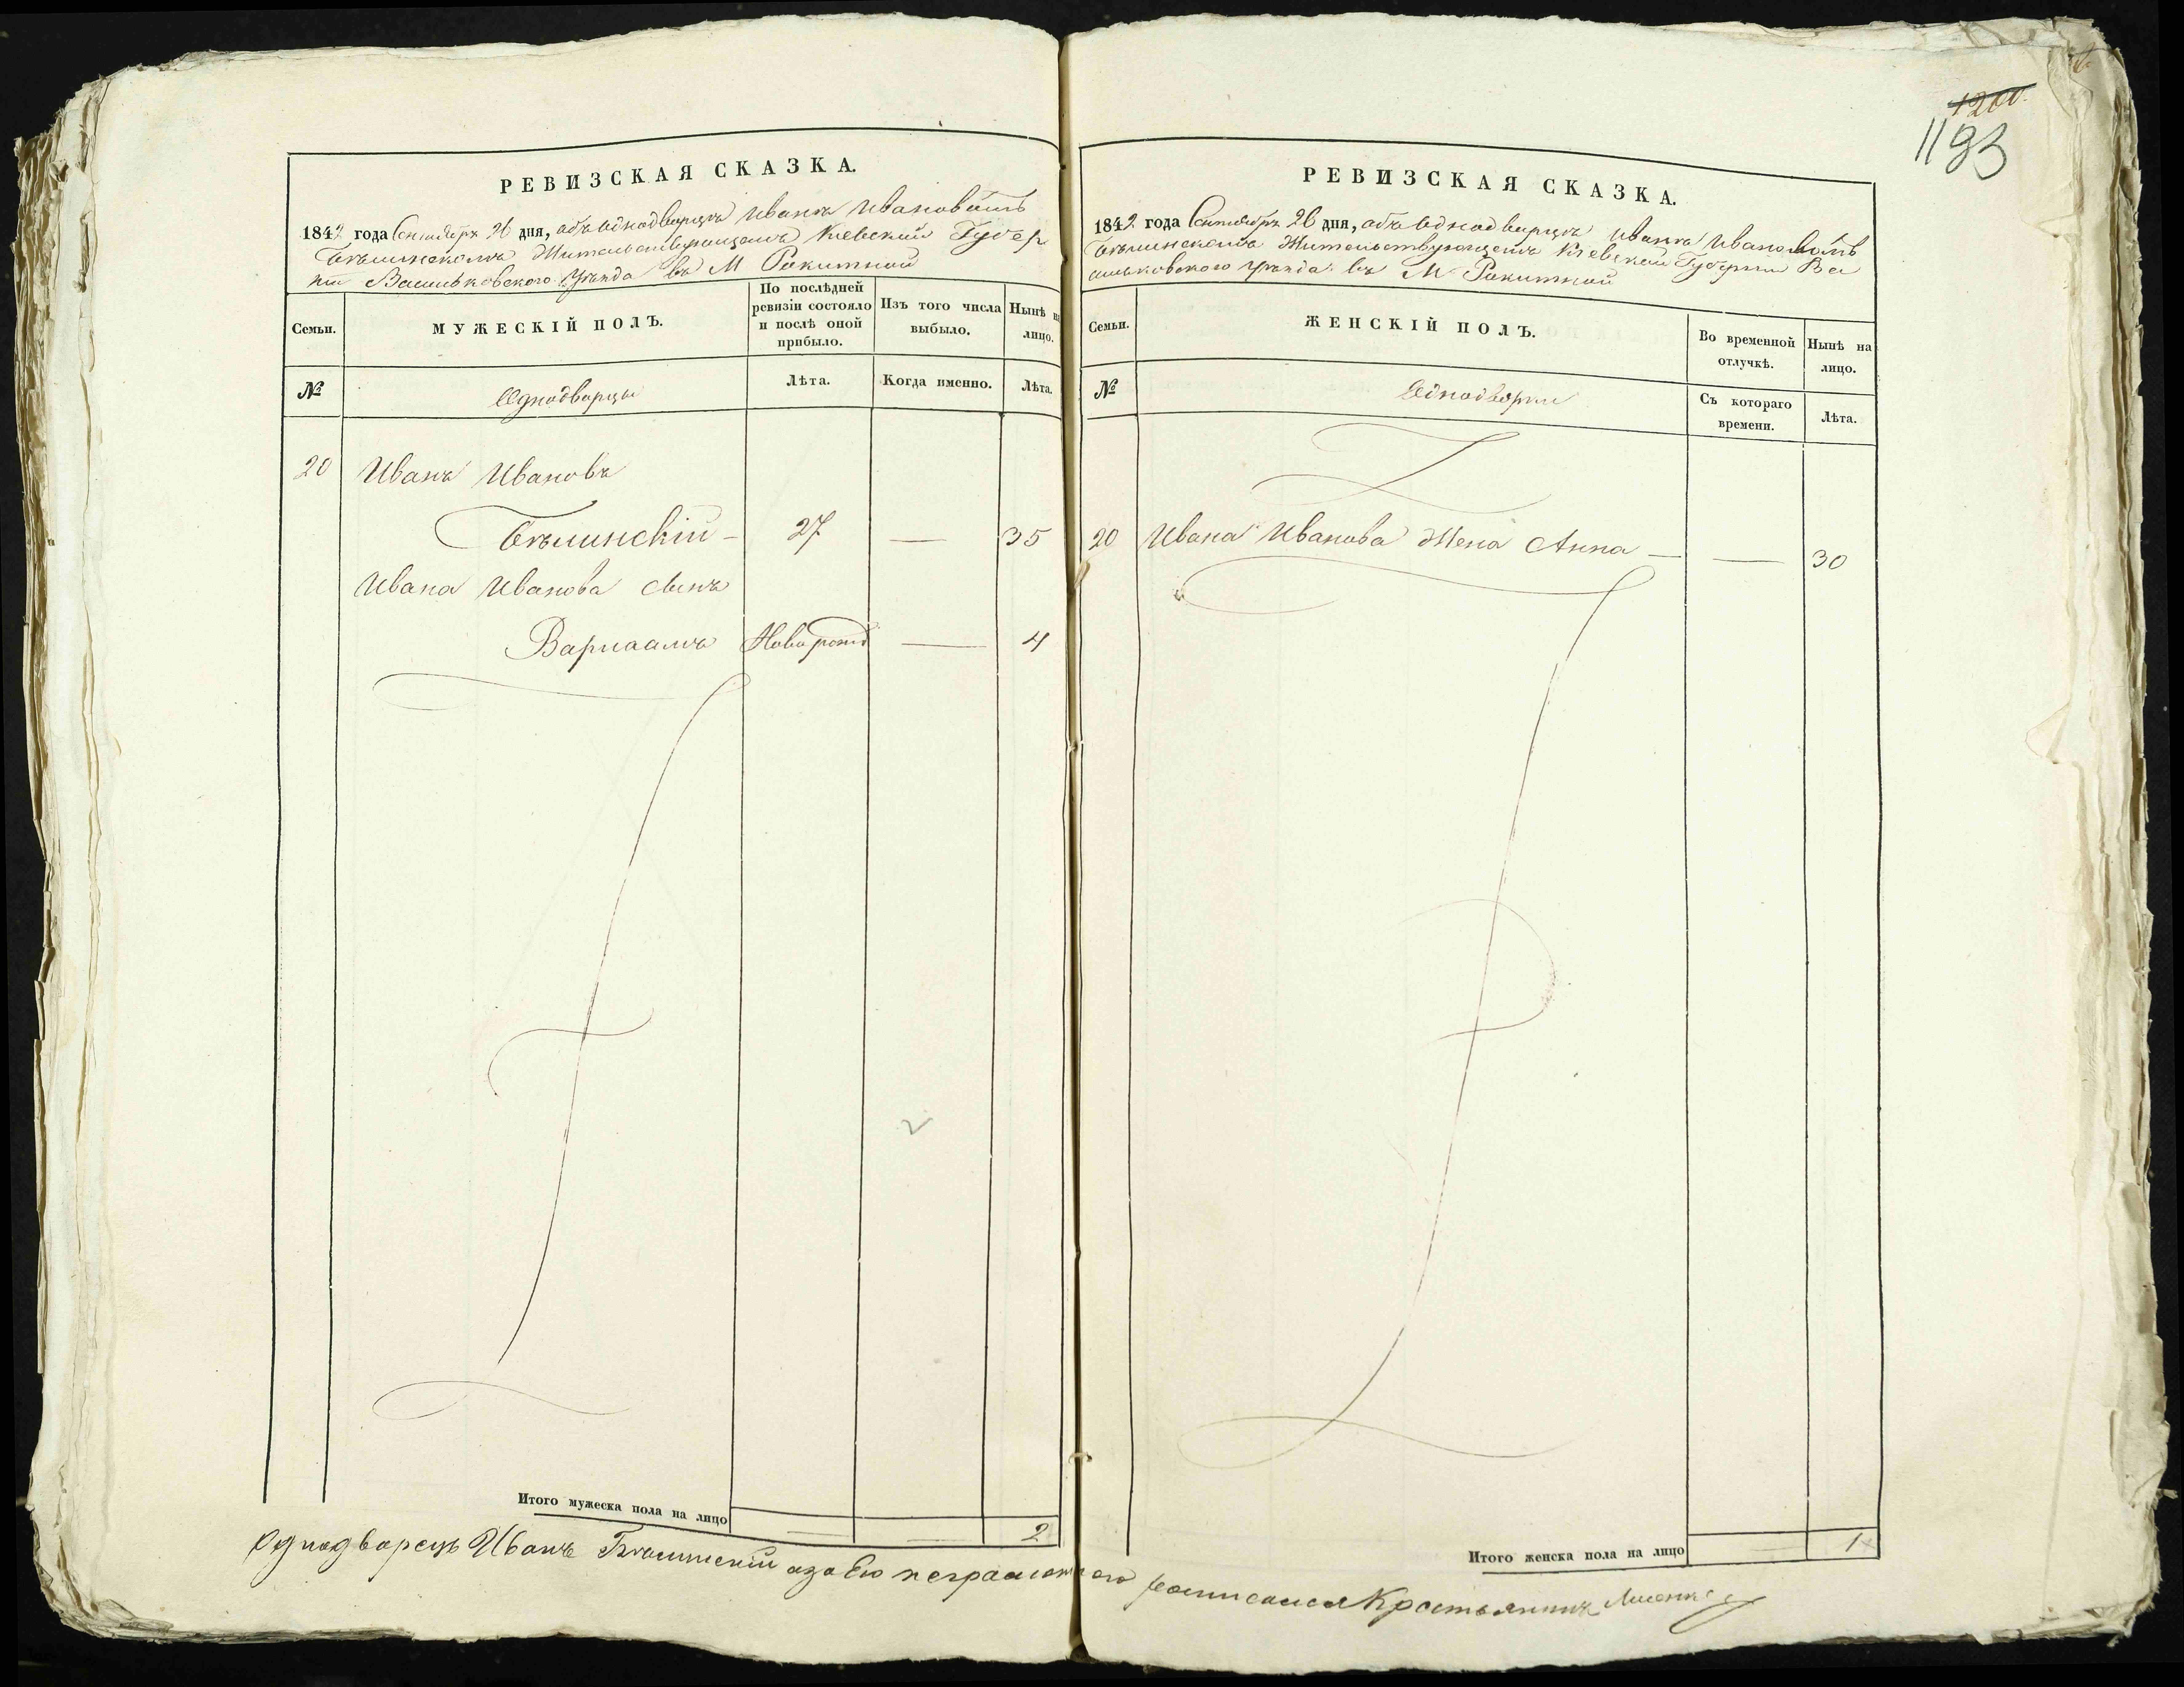 1200.
1193
РЕВИЗСКАЯ СКАЗКА.
1842 года Сентября 26 дня, объ однодворцѣ Иванѣ Ивановѣ сынѣ
Бѣлинскомъ Жительствующемъ Кіевской Губер
ніи Васильковского Уѣзда въ М Рокитной
Семьи.
МУЖЕСКІЙ ПОЛЪ.
По послѣдней ревизіи состояло и послѣ оной прибыло.
Изъ того числа выбыло.
Нынѣ на лицо.
№
Однодворцы
Лѣта.
Когда именно.
Лѣта.
20 Иванъ Ивановъ
Бѣлинскій - 27 — 35
Ивана Иванова сынъ
Варлаамъ Новорожд — 4
2
Итого мужеска пола на лицо — — 2
РЕВИЗСКАЯ СКАЗКА.
1842 года Сентября 26 дня, объ однодворцѣ Иванѣ Ивановѣ сынѣ
Бѣлинскомъ Жительствующемъ Кіевской Губерніи Ва
сильковского Уѣзда въ М Рокитной
Семьи.
ЖЕНСКІЙ ПОЛЪ.
Во временной отлучкѣ.
Нынѣ на лицо.
№
Однодворки
Съ котораго времени.
Лѣта.
20 Ивана Иванова Жена Анна — — 30
Итого женска пола на лицо — 1
Однодворецъ Иванъ Бѣлинскій а за его неграмотного росписался Крестьянинъ